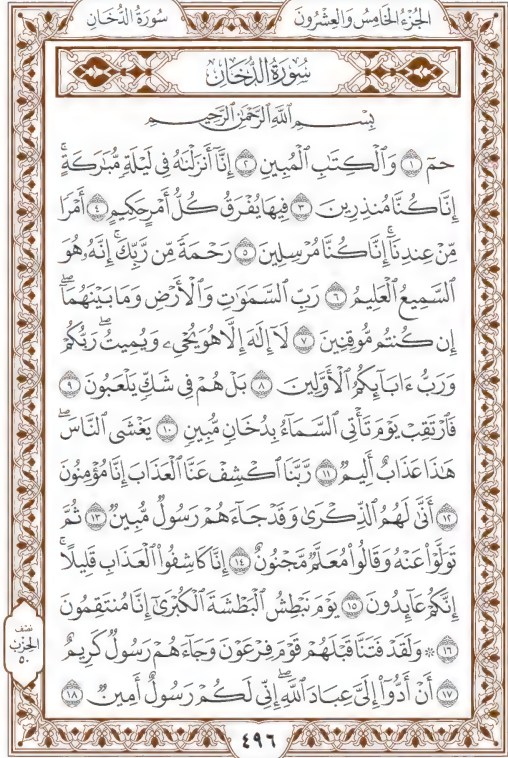 الجُزْءُ الخَامِسُ وَالعِشْرُونَ سُورَةُ الدُّخَانِ
سُورَةُ الدُّخَانِ
بِسْمِ ٱللَّهِ ٱلرَّحْمَٰنِ ٱلرَّحِيمِ
حمٓ ١ وَٱلْكِتَٰبِ ٱلْمُبِينِ ٢ إِنَّآ أَنزَلْنَٰهُ فِى لَيْلَةٍ مُّبَٰرَكَةٍۚ
إِنَّا كُنَّا مُنذِرِينَ ٣ فِيهَا يُفْرَقُ كُلُّ أَمْرٍ حَكِيمٍ ٤ أَمْرًا
مِّنْ عِندِنَآۚ إِنَّا كُنَّا مُرْسِلِينَ ٥ رَحْمَةً مِّن رَّبِّكَۚ إِنَّهُۥ هُوَ
ٱلسَّمِيعُ ٱلْعَلِيمُ ٦ رَبِّ ٱلسَّمَٰوَٰتِ وَٱلْأَرْضِ وَمَا بَيْنَهُمَآۖ
إِن كُنتُم مُّوقِنِينَ ٧ لَآ إِلَٰهَ إِلَّا هُوَ يُحْىِۦ وَيُمِيتُۖ رَبُّكُمْ
وَرَبُّ ءَابَآئِكُمُ ٱلْأَوَّلِينَ ٨ بَلْ هُمْ فِى شَكٍّ يَلْعَبُونَ ٩
فَٱرْتَقِبْ يَوْمَ تَأْتِى ٱلسَّمَآءُ بِدُخَانٍ مُّبِينٍ ١٠ يَغْشَى ٱلنَّاسَۖ
هَٰذَا عَذَابٌ أَلِيمٌ ١١ رَّبَّنَا ٱكْشِفْ عَنَّا ٱلْعَذَابَ إِنَّا مُؤْمِنُونَ
١٢ أَنَّىٰ لَهُمُ ٱلذِّكْرَىٰ وَقَدْ جَآءَهُمْ رَسُولٌ مُّبِينٌ ١٣ ثُمَّ
تَوَلَّوْا۟ عَنْهُ وَقَالُوا۟ مُعَلَّمٌ مَّجْنُونٌ ١٤ إِنَّا كَاشِفُوا۟ ٱلْعَذَابِ قَلِيلًاۚ
إِنَّكُمْ عَآئِدُونَ ١٥ يَوْمَ نَبْطِشُ ٱلْبَطْشَةَ ٱلْكُبْرَىٰٓ إِنَّا مُنتَقِمُونَ
١٦ ۞ وَلَقَدْ فَتَنَّا قَبْلَهُمْ قَوْمَ فِرْعَوْنَ وَجَآءَهُمْ رَسُولٌ كَرِيمٌ
١٧ أَنْ أَدُّوٓا۟ إِلَىَّ عِبَادَ ٱللَّهِۖ إِنِّى لَكُمْ رَسُولٌ أَمِينٌ ١٨
نصف
الحزب
٥٠
٤٩٦